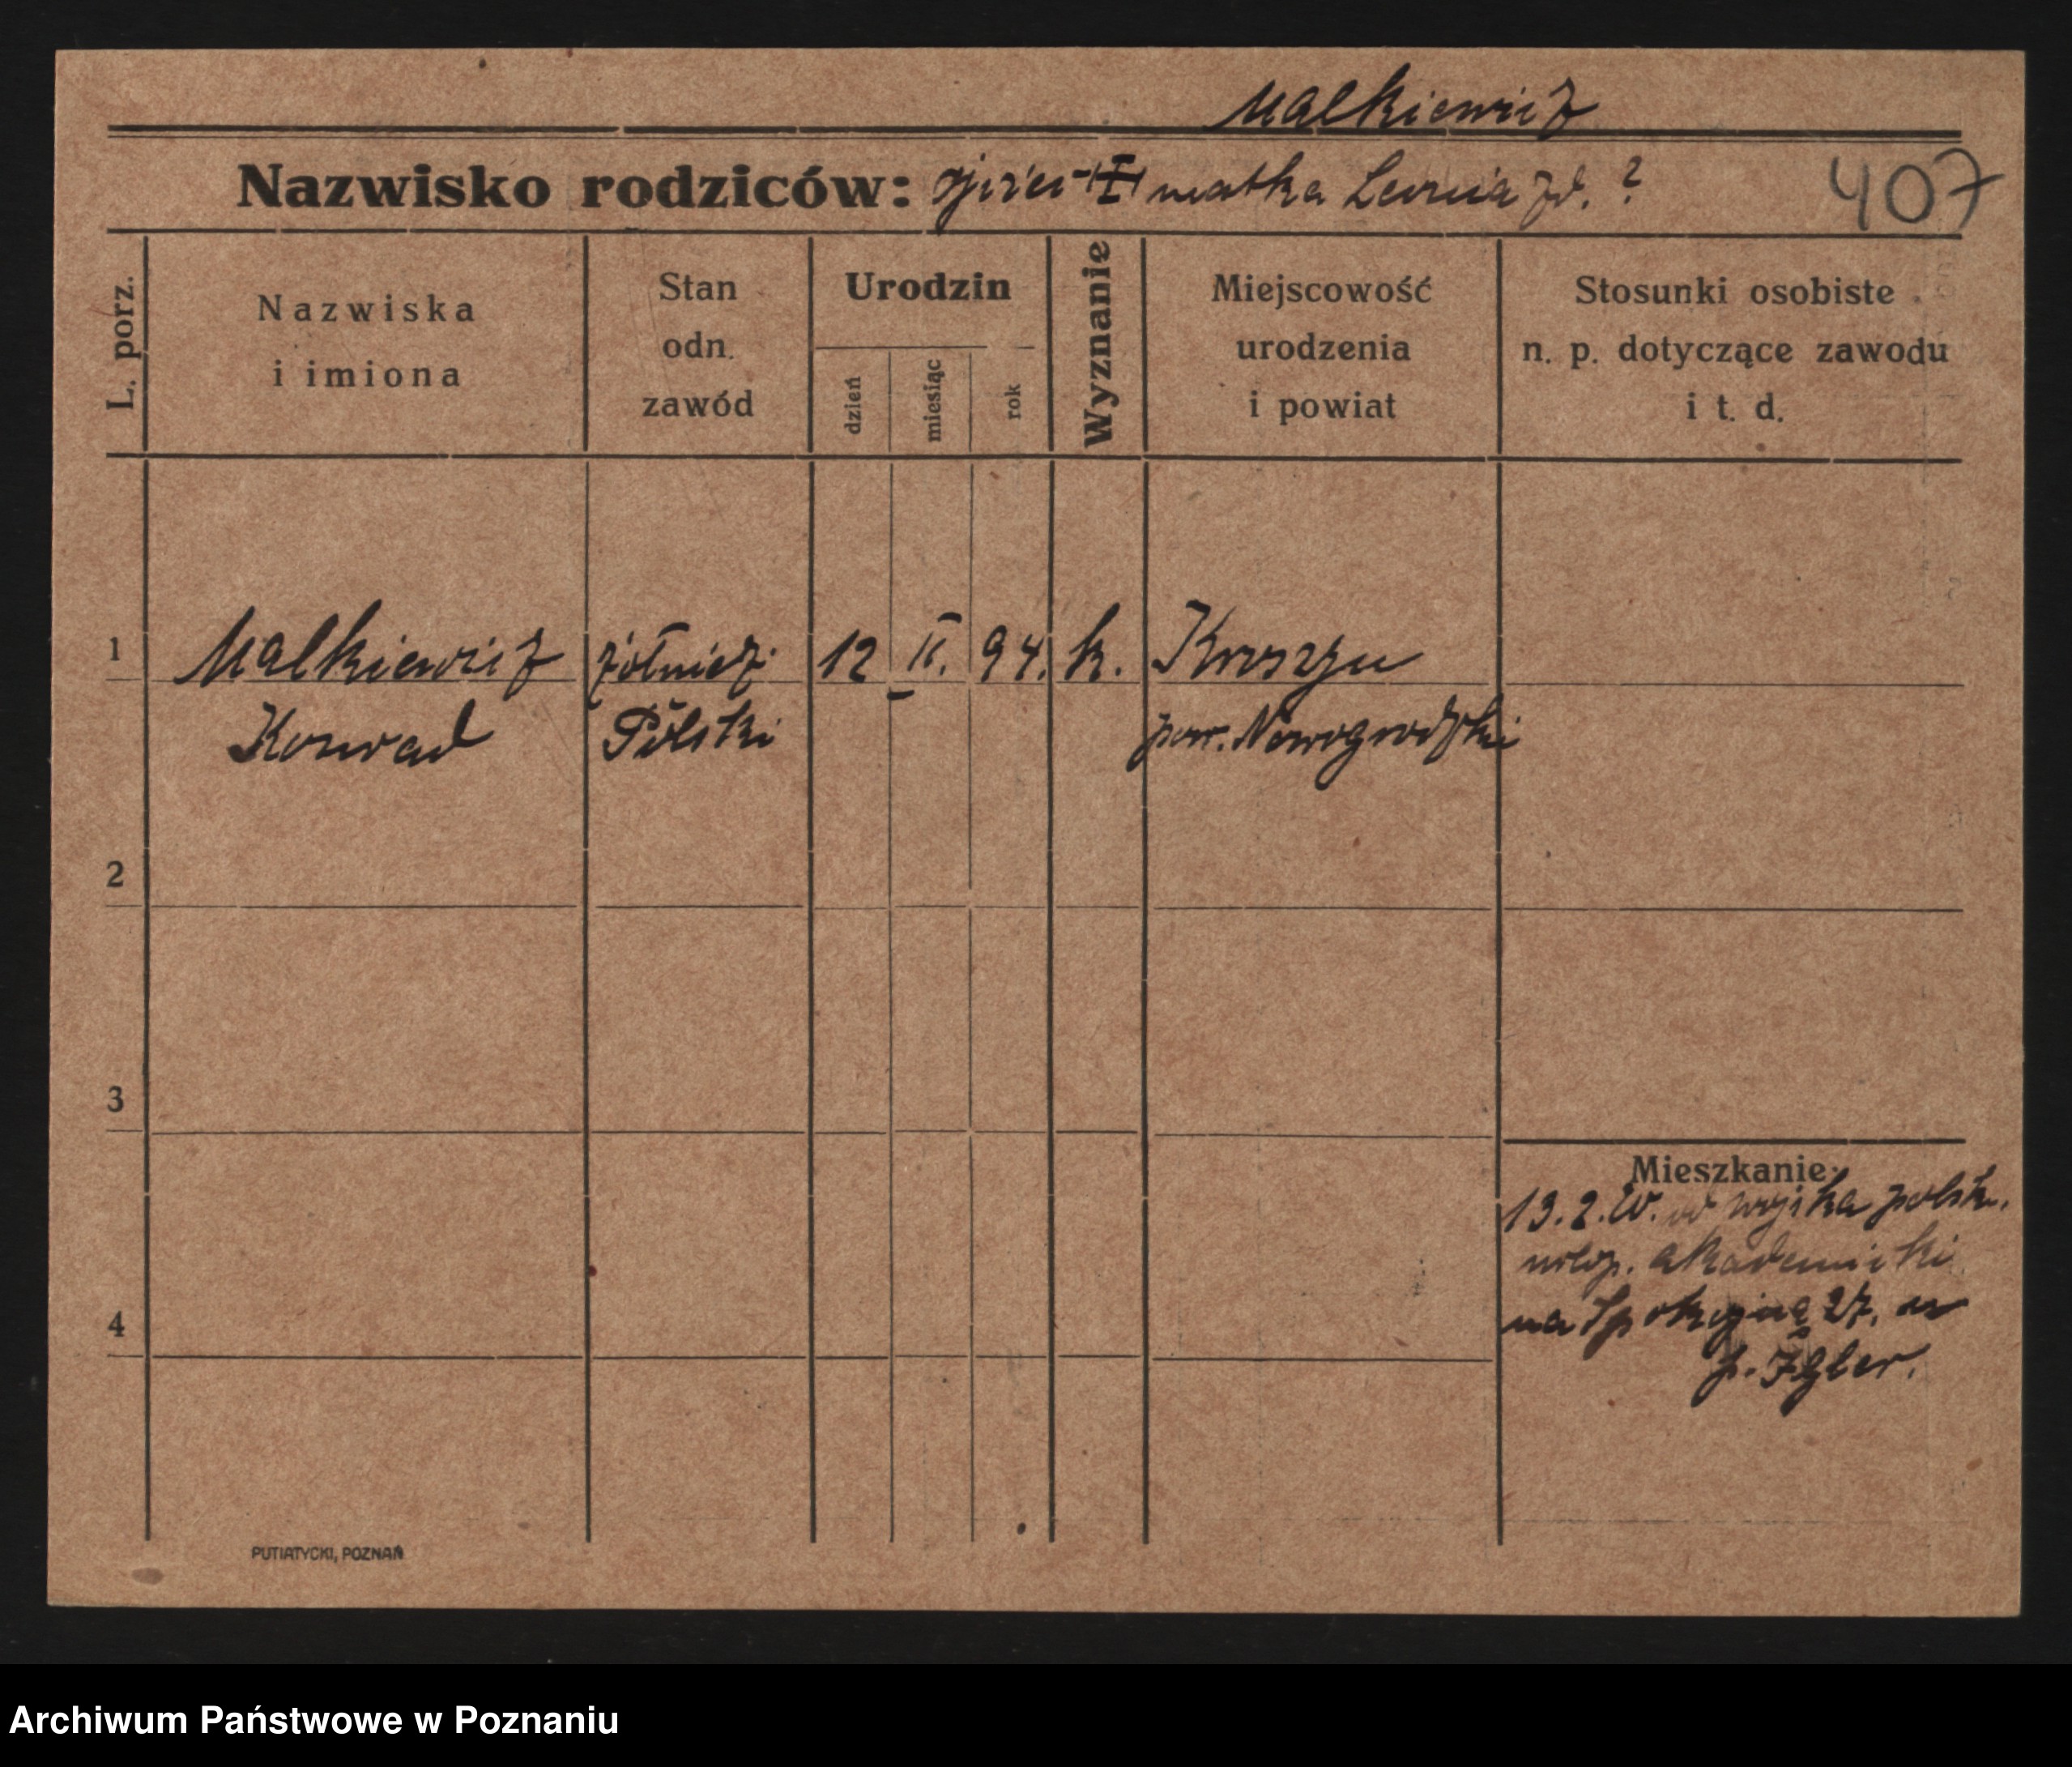 Malkiewicz
Nazwisko rodziców: matka ?
407
L. porz.
Nazwiska
i imiona
Stan
odn.
zawód
Urodzin
dzień
miesiąc
rok
Wyznanie
Miejscowość
urodzenia
i powiat
Stosunki osobiste
n. p. dotyczące zawodu
i t. d.
1 Malkiewicz żołnierz 12 II. 94. k.
Konrad Polski pow. Nowogrodzki
2
3
4
Mieszkanie:
13.2. od wojska polsk.
akademicki
na Spokojna 27.
p.
PUTIATYCKI, POZNAŃ
Archiwum Państwowe w Poznaniu